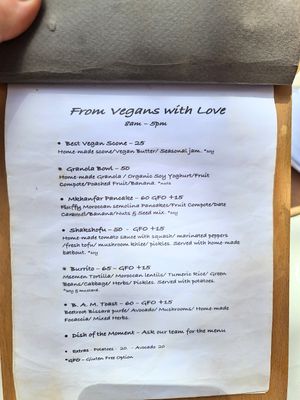 From Vegans with Love
8am – 5pm
• Best Vegan Scone – 25
Home-made scone/Vegan Butter/ Seasonal jam. *soy
• Granola Bowl – 50
Home-made Granola / Organic Soy Yoghurt/Fruit
Compote/Poached Fruit/Banana. *nuts
• Mkhanfar Pancake – 60 GFO +15
Fluffy Moroccan semolina Pancakes/Fruit Compote/Date
Caramel/Banana/Nuts & Seed mix. *soy
• Shakshofu – 50 – GFO +15
Home-made tomato sauce with squash/ marinated peppers
/fresh tofu/ mushroom khlee/ pickles. Served with home-made
batbout. *soy
• Burrito – 65 – GFO +15
Msemen Tortilla/ Moroccan lentils/ Tumeric Rice/ Green
Beans/Cabbage/ Herbs/ Pickles. Served with potatoes.
*soy & mustard
• B. A. M. Toast – 60 – GFO +15
Beetroot Bissara purée/ Avocado/ Mushrooms/ Home-made
Focaccia/ Mixed Herbs.
• Dish of the Moment – Ask our team for the menu
• Extras – Potatoes – 20 – Avocado 20
*GFO – Gluten Free Option